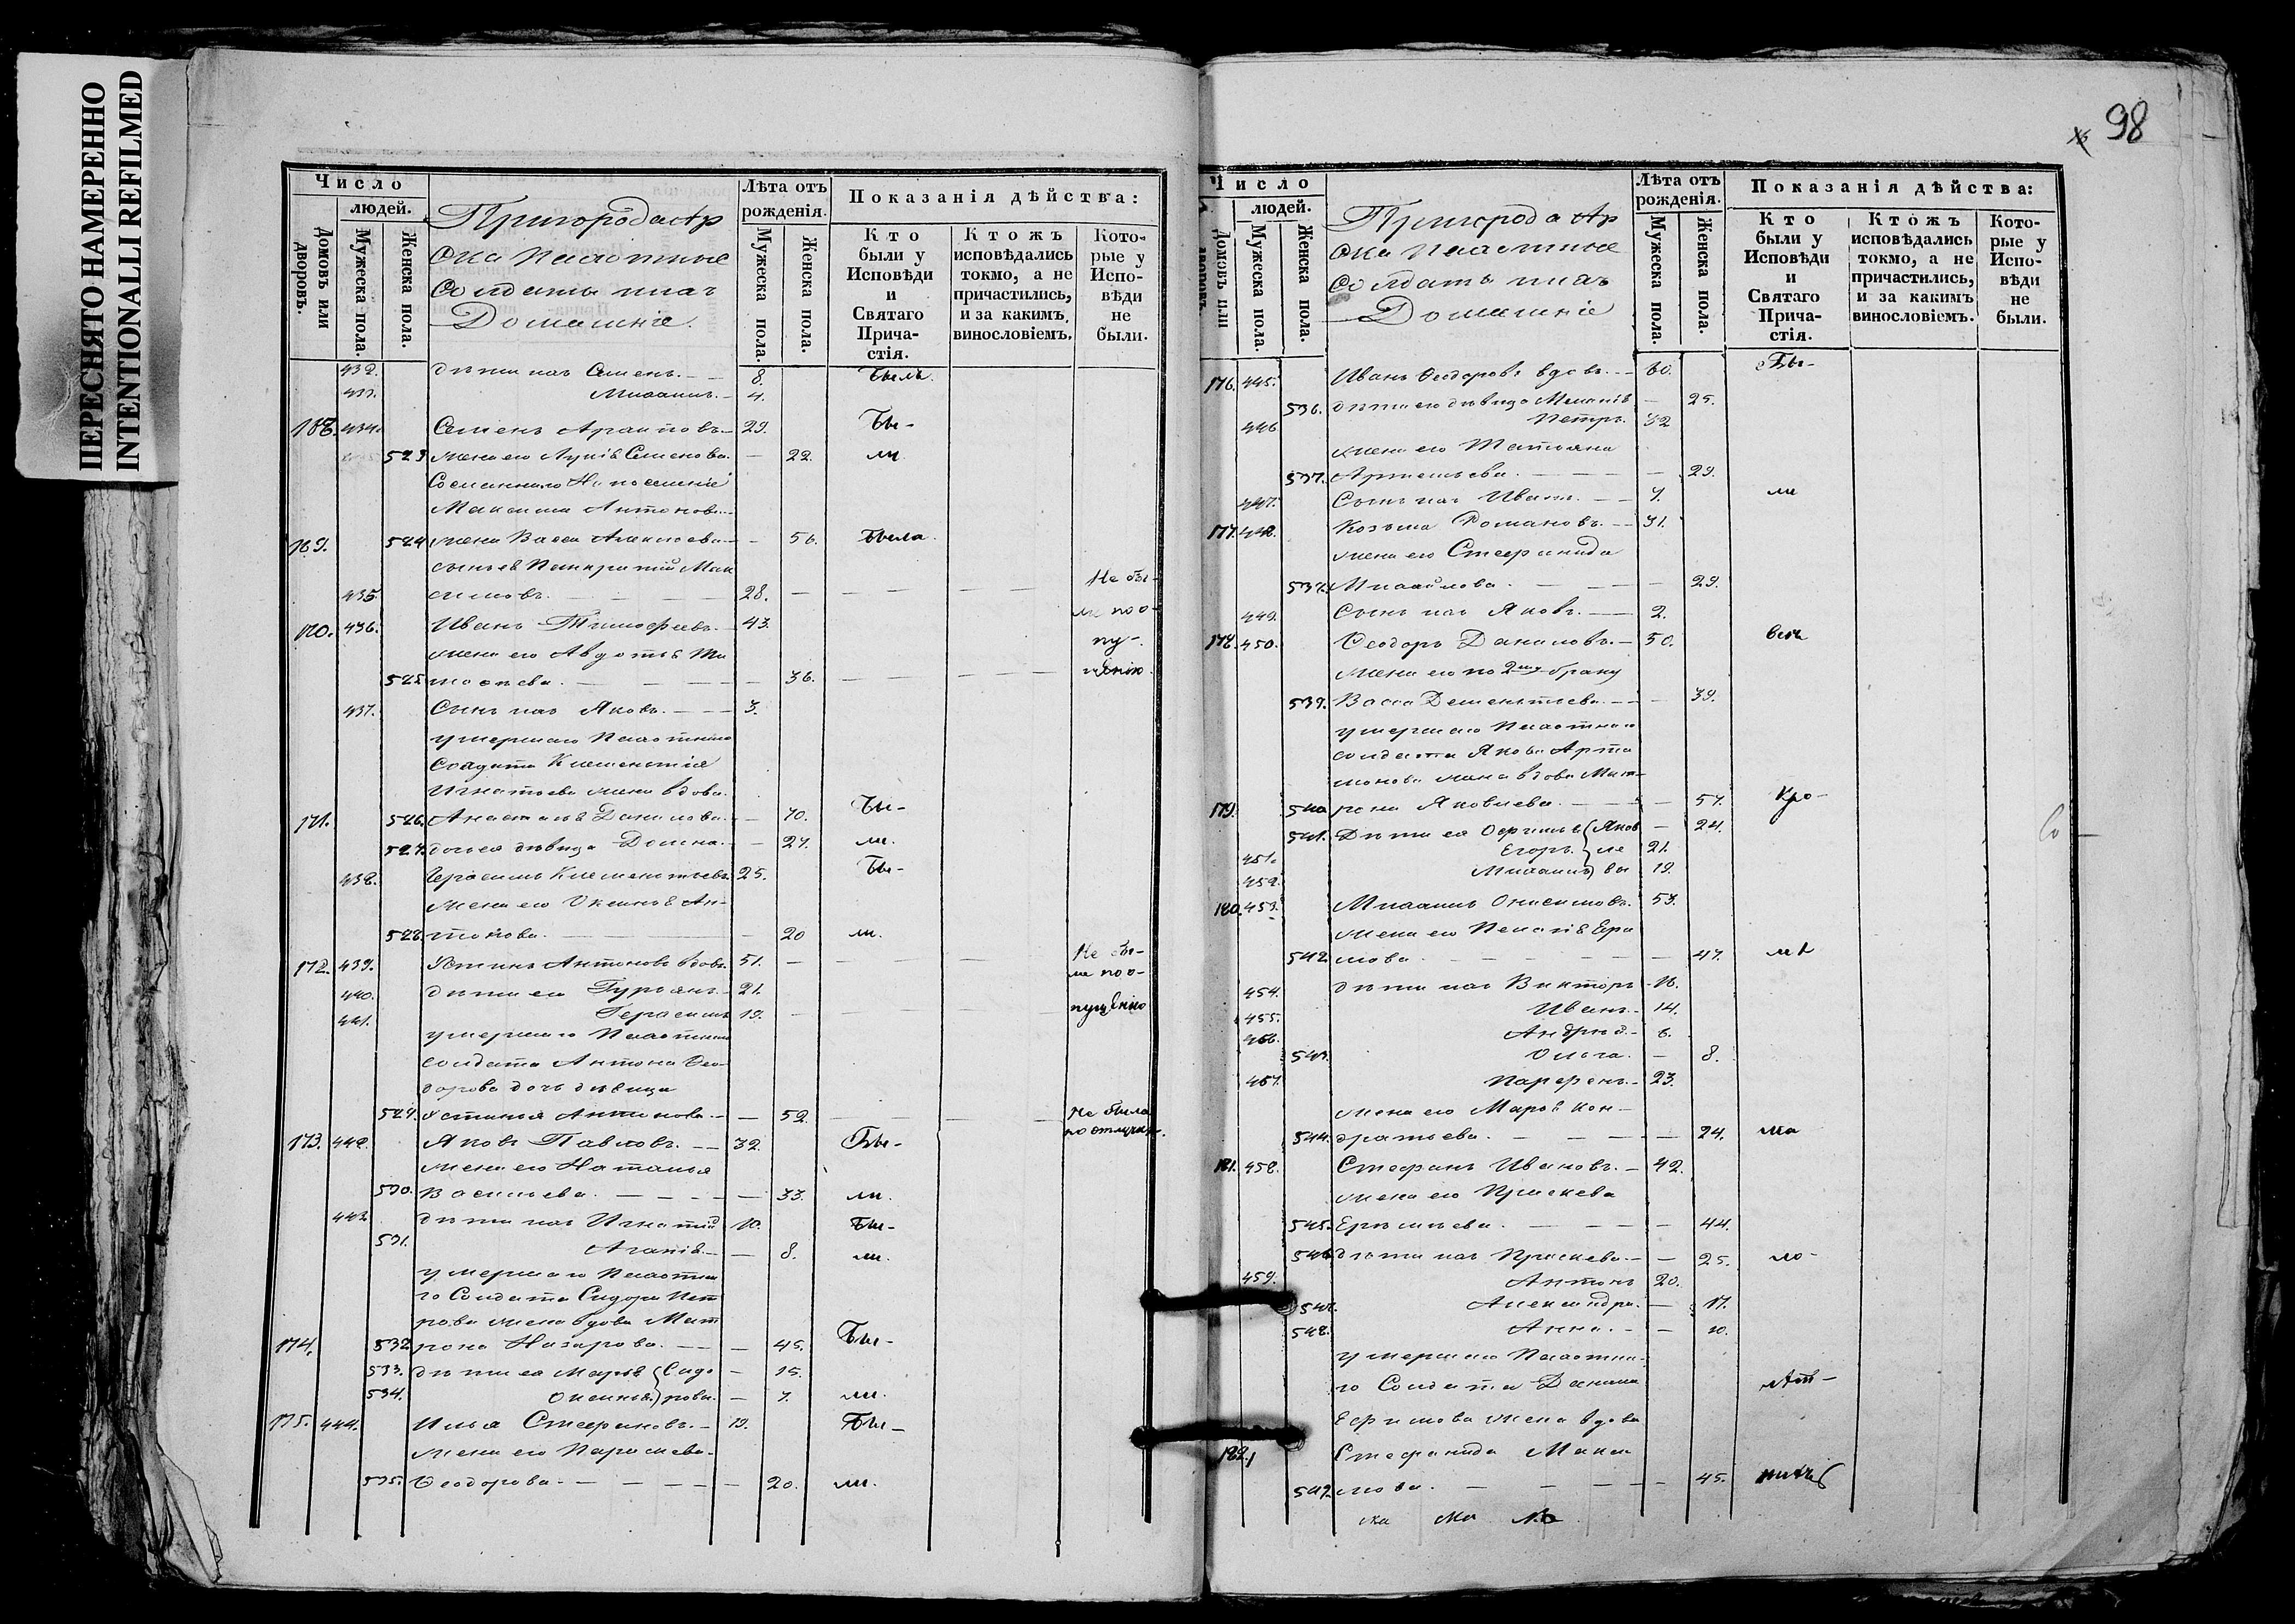 ПЕРЕСНЯТО НАМЕРЕННО
INTENTIONALLI REFILMED
98
Число
людей.
Домовъ или дворовъ.
Мужеска пола.
Женска пола.
Пригорода Ар
ска Пахотные
Солдаты ихъ
Домашніе.
Лѣта отъ рожденія.
Мужеска пола.
Женска пола.
Показанія дѣйства:
Кто были у Исповѣди и Святаго Прича-стія.
Ктожъ исповѣдались токмо, а не причастились, и за какимъ винословіемъ.
Кото-рые у Испо-вѣди не были.
432. дѣти ихъ Семенъ. 8. Былъ.
433. Михаилъ. 4.
168. 434. Семенъ Архиповъ. 29. Бы-
523 жена его Лукія Семенова. — 22. ли
Сосланнаго На поселеніе
Максима Антонова
169. 524 жена Васса Алексѣева — 56. Была
сынъ ея Панкратій Мак
435 симовъ. 28. Не бы-
170. 436. Иванъ Тимофѣевъ. 43. ли по о-
жена его Авдотья Ти пу-
525 моѳеева. — 36. щенію.
437. Сынъ ихъ Яковъ. 3.
умершаго Пахотнаго
Солдата Клементія
Игнатьева жена вдова
171. 526. Анастасія Данилова. — 70. Бы-
527. дочь ея дѣвица Домна. — 27. ли.
438. Герасимъ Клементьевъ. 25. Бы-
жена его Оксинья Ан-
528. тонова. — 20 ли.
172. 439. Устинъ Антоновъ вдовъ. 51. Не бы-
ли по о-
440. дѣти его Гурьянъ. 21.
пущенію
441. Герасимъ 19.
умершаго Пахотнаго
солдата Антона Ѳео-
дорова дочь дѣвица
529. Устинья Антонова. — 52. Не была
по отлучк.
173. 442. Яковъ Павловъ. 32. Бы-
жена его Наталья
530. Васильева. — 33. ли.
443 дѣти ихъ Игнатій 10. Бы-
531. Агапія. — 8. ли.
умершаго Пахотна
го Солдата Сидора Пет
рова жена вдова Мат
174. 532 рона Назарова. — 45. Бы-
533. дѣти ея Марья Сидо — 15.
534. Оксинья рова. — 7. ли.
175. 444. Илья Стефановъ. 19. Бы-
жена его Парасковья
535. Ѳеодорова. — 20. ли.
Число
людей.
Домовъ или дворовъ.
Мужеска пола.
Женска пола.
Пригорода Ар
ска Пахотные
Солдаты ихъ
Домашніе
Лѣта отъ рожденія.
Мужеска пола.
Женска пола.
Показанія дѣйства:
Кто были у Исповѣди и Святаго Прича-стія.
Ктожъ исповѣдались токмо, а не причастились, и за какимъ винословіемъ.
Кото-рые у Испо-вѣди не были.
176. 445. Иванъ Ѳеодоровъ вдовъ. 60. Бы-
536. дѣти его дѣвица Меланія — 25.
446 Петръ. 32
жена его Татьяна
537. Артемьева. — 29.
447. Сынъ ихъ Иванъ. 7. ли
177. 448. Козьма Романовъ. 31.
жена его Стефанида
538. Михайлова. — 29.
449. Сынъ ихъ Яковъ. 2.
178. 450. Ѳеодоръ Даниловъ. 50. всѣ
Жена его по 2му браку
539. Васса Дементьева. — 39.
умершаго Пахотнаго
солдата Якова Арта
монова жена вдова Мат
179. 540 рона Яковлева. — 57. Кро-
541. Дѣти ея Офимья Яков — 24.
451. Егоръ ле 21.
452. Михаилъ вы 19.
180. 453. Михаилъ Онисимовъ. 53.
жена его Пелагія Ефи
542 мова — 47. мѣ
454. дѣти ихъ Викторъ 16.
455. Иванъ. 14.
456. Андрей. 6.
543. Ольга. — 8.
457. Парфенъ. 23.
жена его Марѳа Кон-
544. дратьева. — 24. ма
181. 458. Стефанъ Ивановъ. 42.
жена его Прасковья
545. — 44.
546 дѣти ихъ Прасковья. — 25. ло-
459. Антонъ 20.
547. Александра. — 17.
548. Анна. — 10.
умершаго Пахотна-
го Солдата Данила лѣт-
Ефимова жена вдова
182. Стефанида Макси
549. мова. — 45. нихъ